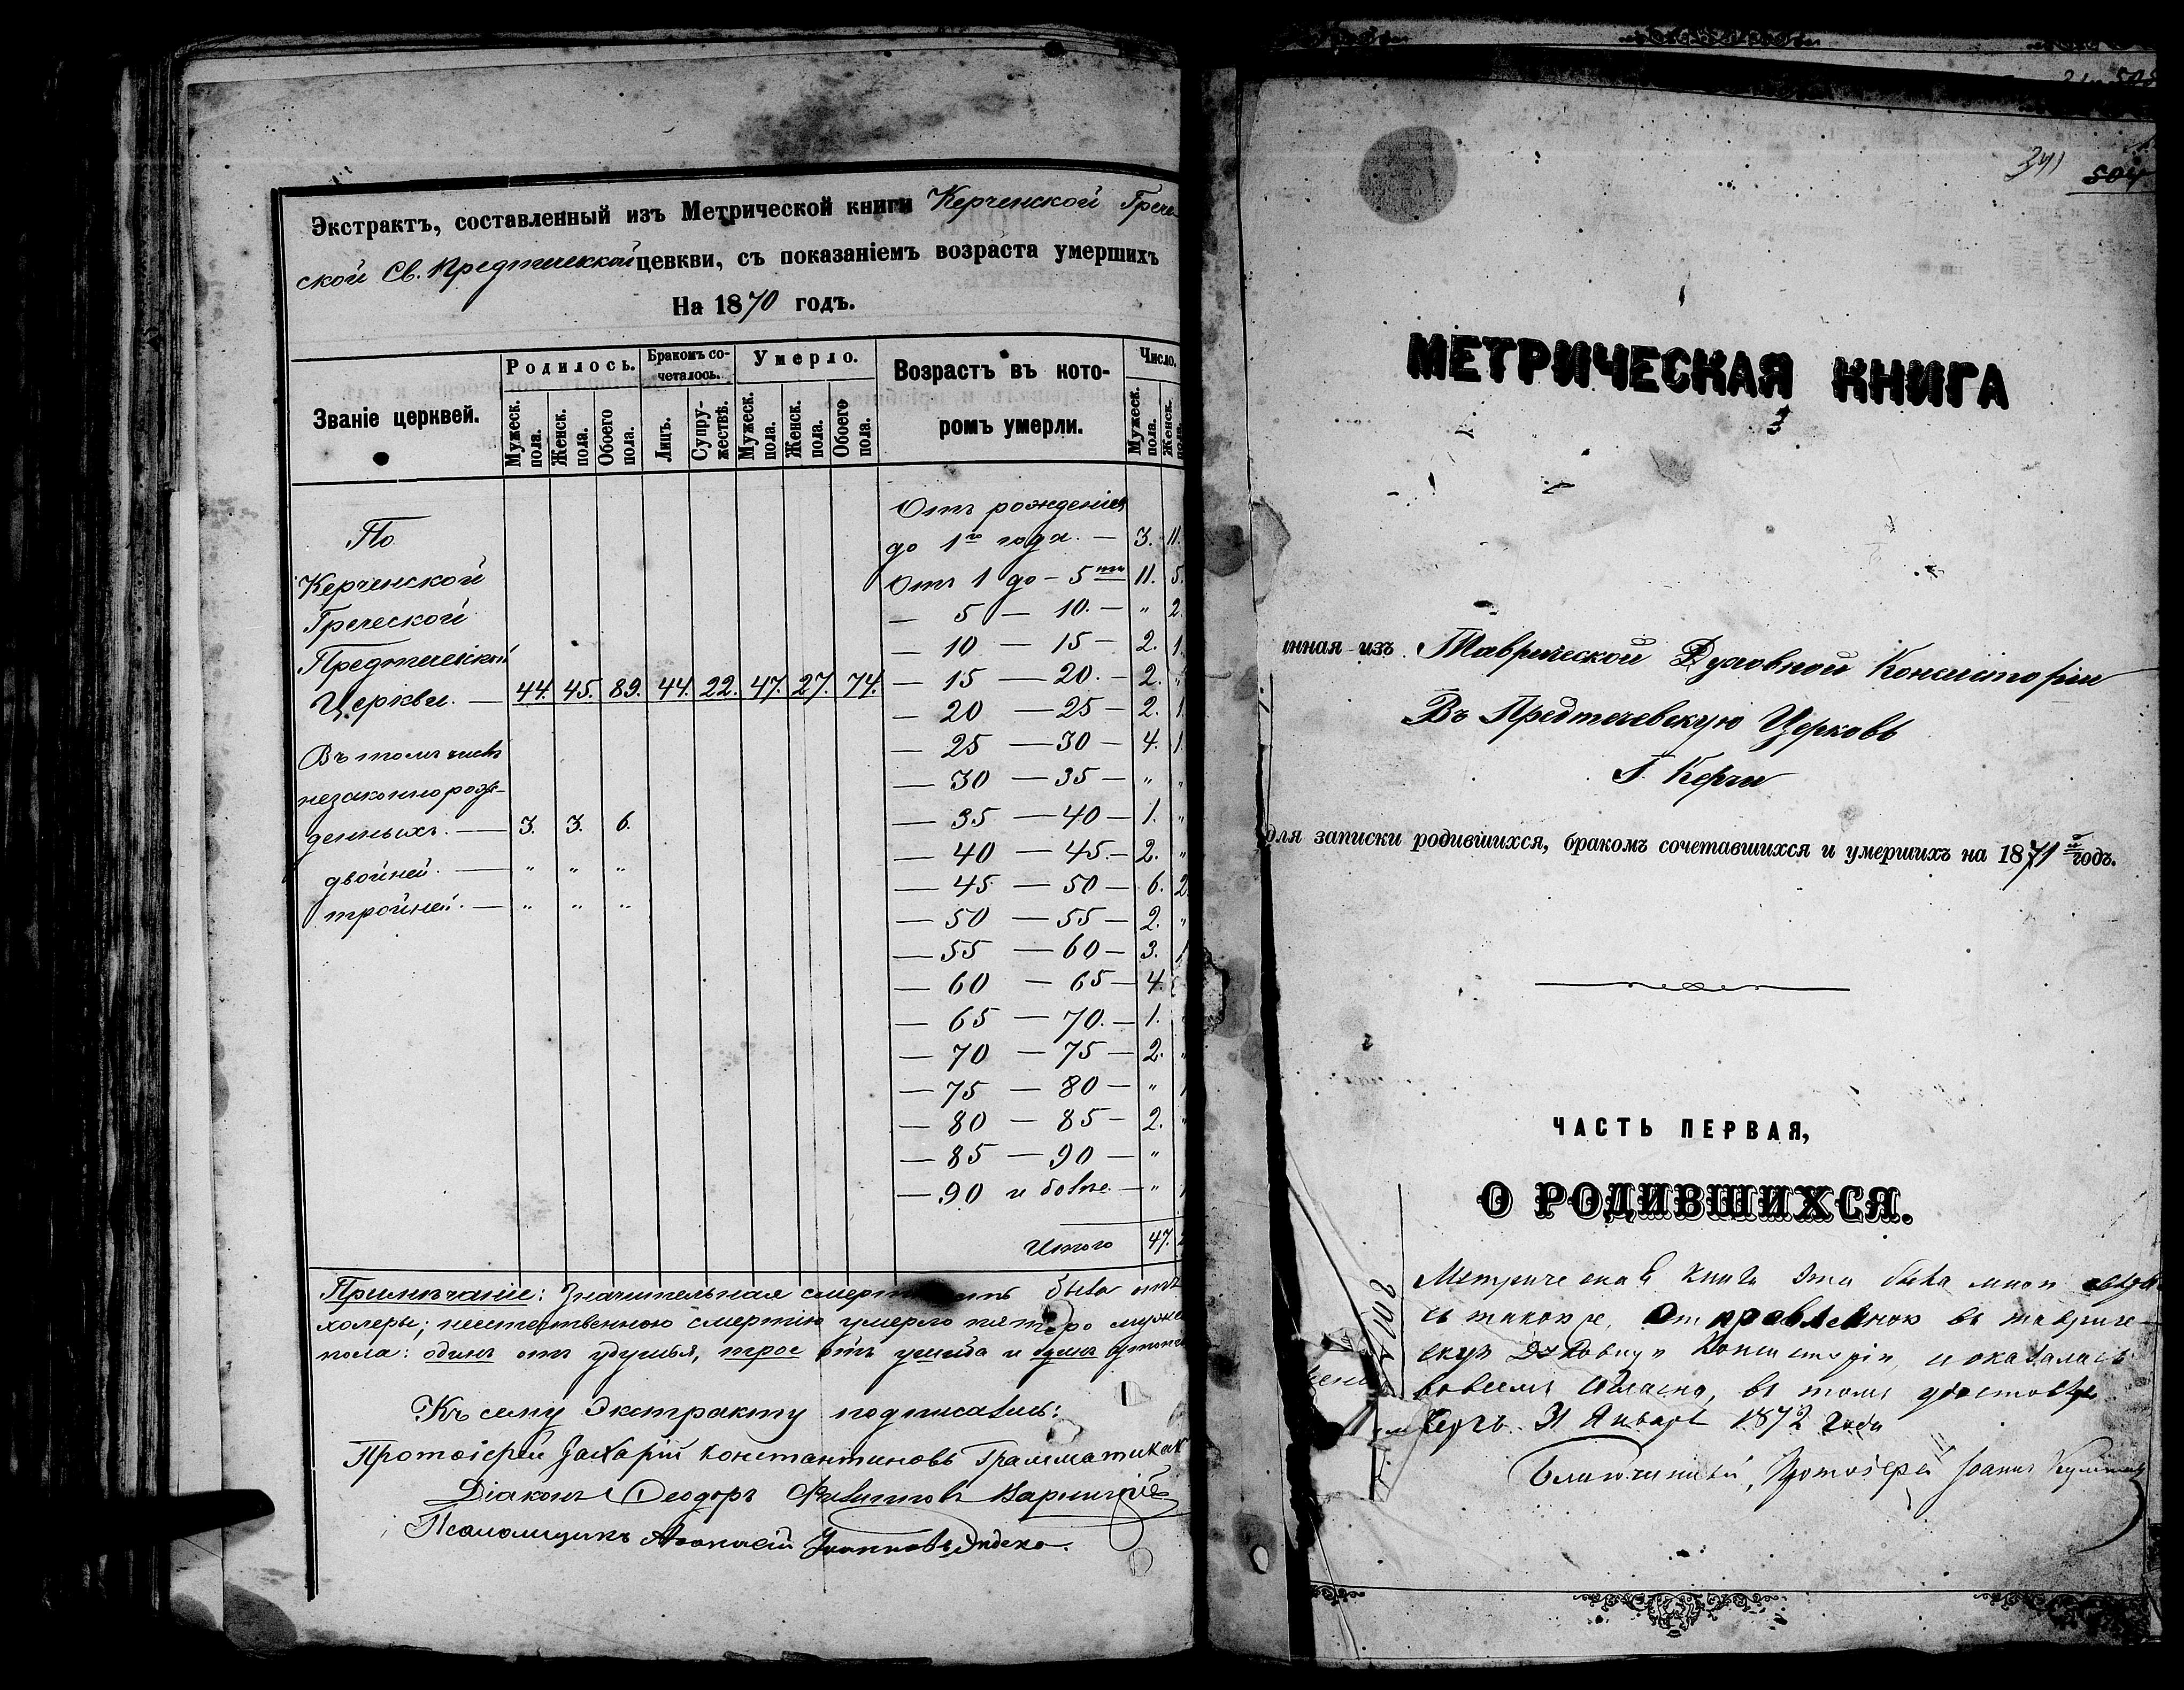 Экстрактъ, составленный изъ Метрической книги Керченской Грече
ской Св. Предтеческой цевкви, съ показаніемъ возраста умершихъ
На 1870 годъ.
Званіе церквей.
Родилось.
Бракомъ со-
четалось.
Умерло.
Возрастъ въ кото-
ромъ умерли.
Число.
Мужеск. пола.
Женск. пола.
Обоего пола.
Лицъ.
Супру-жествъ.
Мужеск. пола.
Женск. пола.
Обоего пола.
Мужеск. пола.
Женск. пола.
По
Керченской
Греческой
Предтеческой
Церкви. — 44. 45. 89. 44. 22. 47. 27. 74.
Въ томъ числѣ
незаконнорож-
денныхъ. — 3. 3. 6.
двойней. — " " "
тройней. — " " "
Отъ рожденія
до 1го года. — 3. 11.
Отъ 1 до — 5ти 11. 5.
— 5 — 10. — " 2.
— 10 — 15 — 2. 1.
— 15 — 20. — 2. "
— 20 — 25 — 2. 1.
— 25 — 30 — 4. 1.
— 30 — 35 — " "
— 35 — 40 — 1. "
— 40 — 45. — 2. "
— 45 — 50 — 6. 2
— 50 — 55 — 2. "
— 55 — 60 — 3. 1
— 60 — 65 — 4.
— 65 — 70. — 1.
— 70 — 75 — 2. "
— 75 — 80 — " 1
— 80 — 85 — 2. "
— 85 — 90 — "
— 90 и болѣе. — " 1
Итого 47. 2
Примѣчаніе: Значительная смертность была отъ
холеры; неестественною смертію умерло пятеро муже
пола: одинъ отъ удушья, трое отъ ушиба и одинъ утоп
Къ сему Экстракту подписались:
Протоіерей Захарій Константиновъ Грамматикак
Діаконъ Ѳеодоръ Филипповъ
Псаломщикъ Аѳанасій Іоанновъ
341
504
МЕТРИЧЕСКАЯ КНИГА
нная изъ Таврической Духовной Консисторіи
Въ Предтечевскую Церковь
Г. Керчи
для записки родившихся, бракомъ сочетавшихся и умершихъ на 1871й годъ.
ЧАСТЬ ПЕРВАЯ,
О РОДИВШИХСЯ.
Метрическая книга эта была мною
съ таковою, отправленною въ Тавриче-
скую Духовную Консисторію, и оказалась
вовсемъ согласна, въ томъ
Керчь. 31 Января 1872 года
Благочинный, Протоіерей Іоаннъ